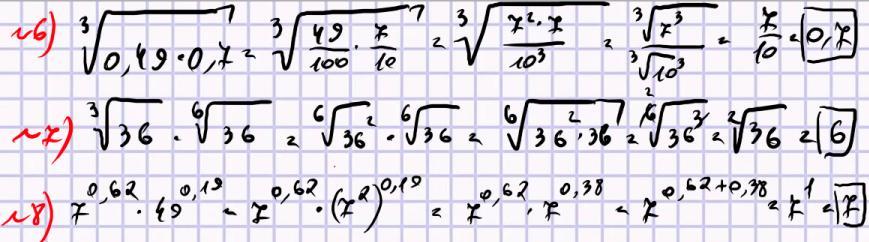 №6) ∛(0,49·0,7) = ∛(49/100 · 7/10) = ∛(7²·7/10³) = ∛7³/∛10³ = 7/10 = 0,7
№7) ∛36 · ⁶√36 = ⁶√36² · ⁶√36 = ⁶√(36²·36) = ⁶√36³ = ²√36 = 6
№8) 7^0,62 · 49^0,19 = 7^0,62 · (7²)^0,19 = 7^0,62 · 7^0,38 = 7^0,62+0,38 = 7¹ = 7